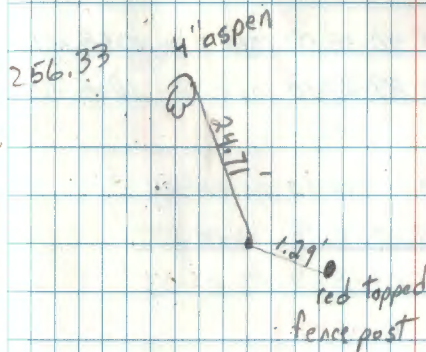 4" aspen
256.33
24.71
1.29'
red topped
fence post